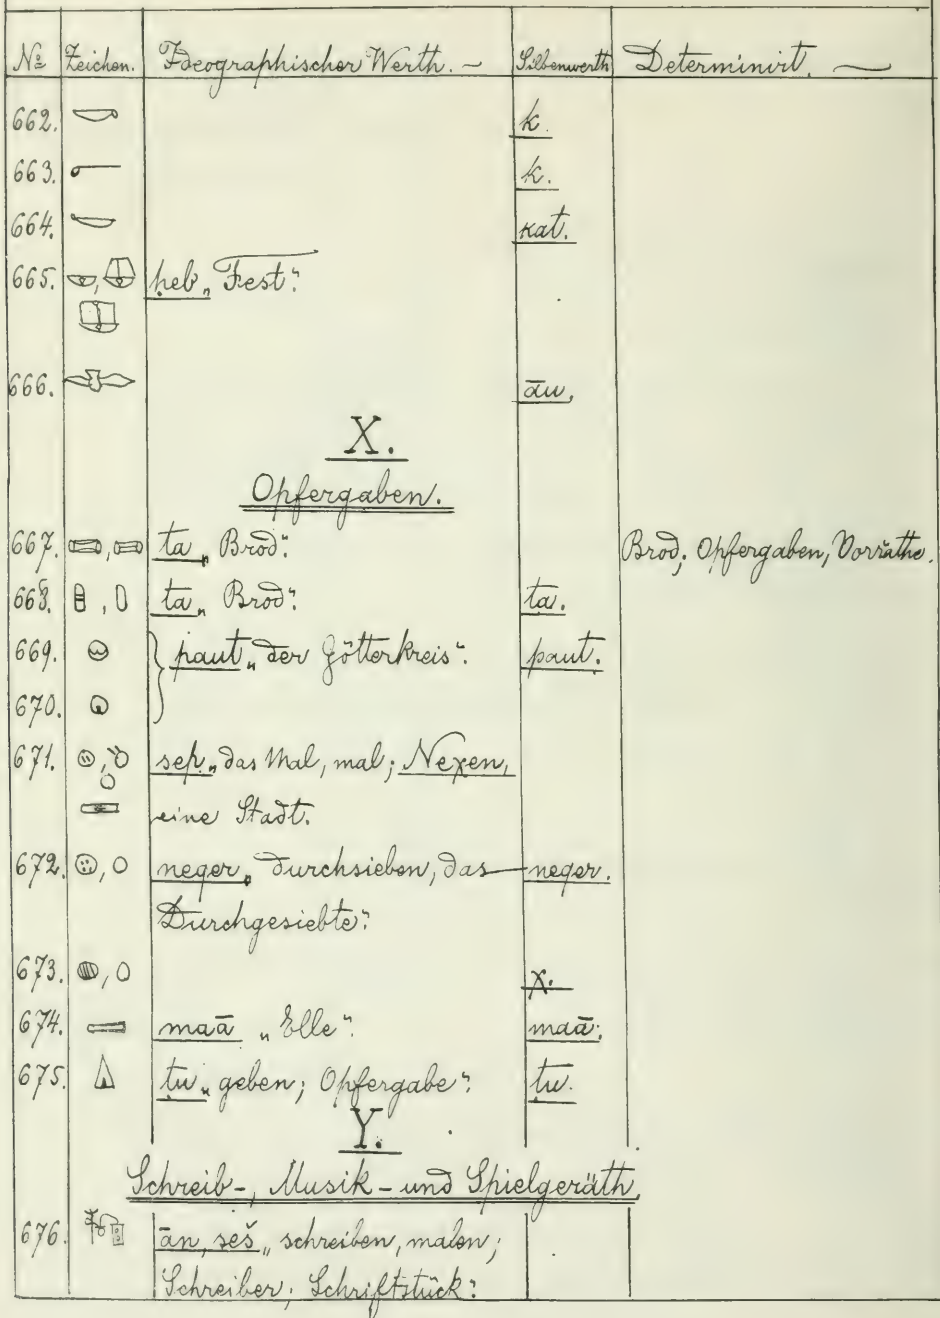 № Zeichen. Ideographischer Werth. – Silbenwerth Determinirt. —
662. k.
663. k.
664. kat.
665. ḥeb „Fest“.
666. āu.
X.
Opfergaben.
667. ta „Brod“. Brod; Opfergaben, Vorräthe.
668. ta „Brod“. ta.
669. paut „der Götterkreis“. paut.
670.
671. sep „das Mal, mal; Neχen,
eine Stadt.
672. neger „durchsieben, das neger.
Durchgesiebte“.
673. χ.
674. maā „Elle“. maā.
675. tu „geben; Opfergabe“. tu.
Y.
Schreib-, Musik- und Spielgeräth.
676. ān, seš „schreiben, malen;
Schreiber; Schriftstück“.